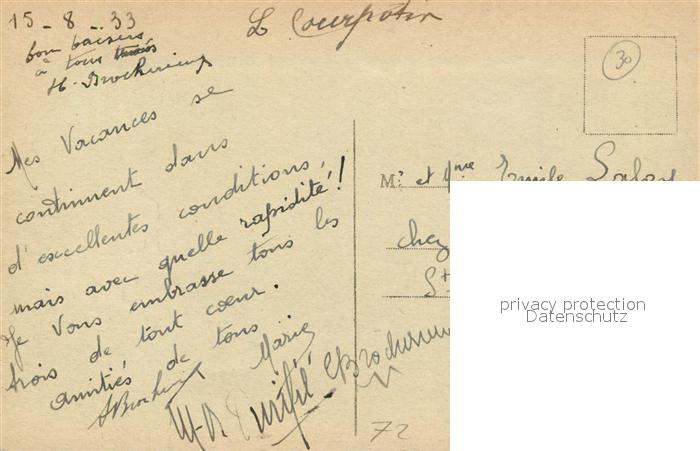 15-8-33
bons baisers
à tous
H. Brochereux
L Courpotin
30
Mes Vacances se
continuent dans
d'excellentes conditions,
mais avec quelle rapidité!!
Je Vous embrasse tous les
trois de tout coeur.
amitiés de tous
Marie
M. et Mme Emile
chez
St
72
privacy protection
Datenschutz